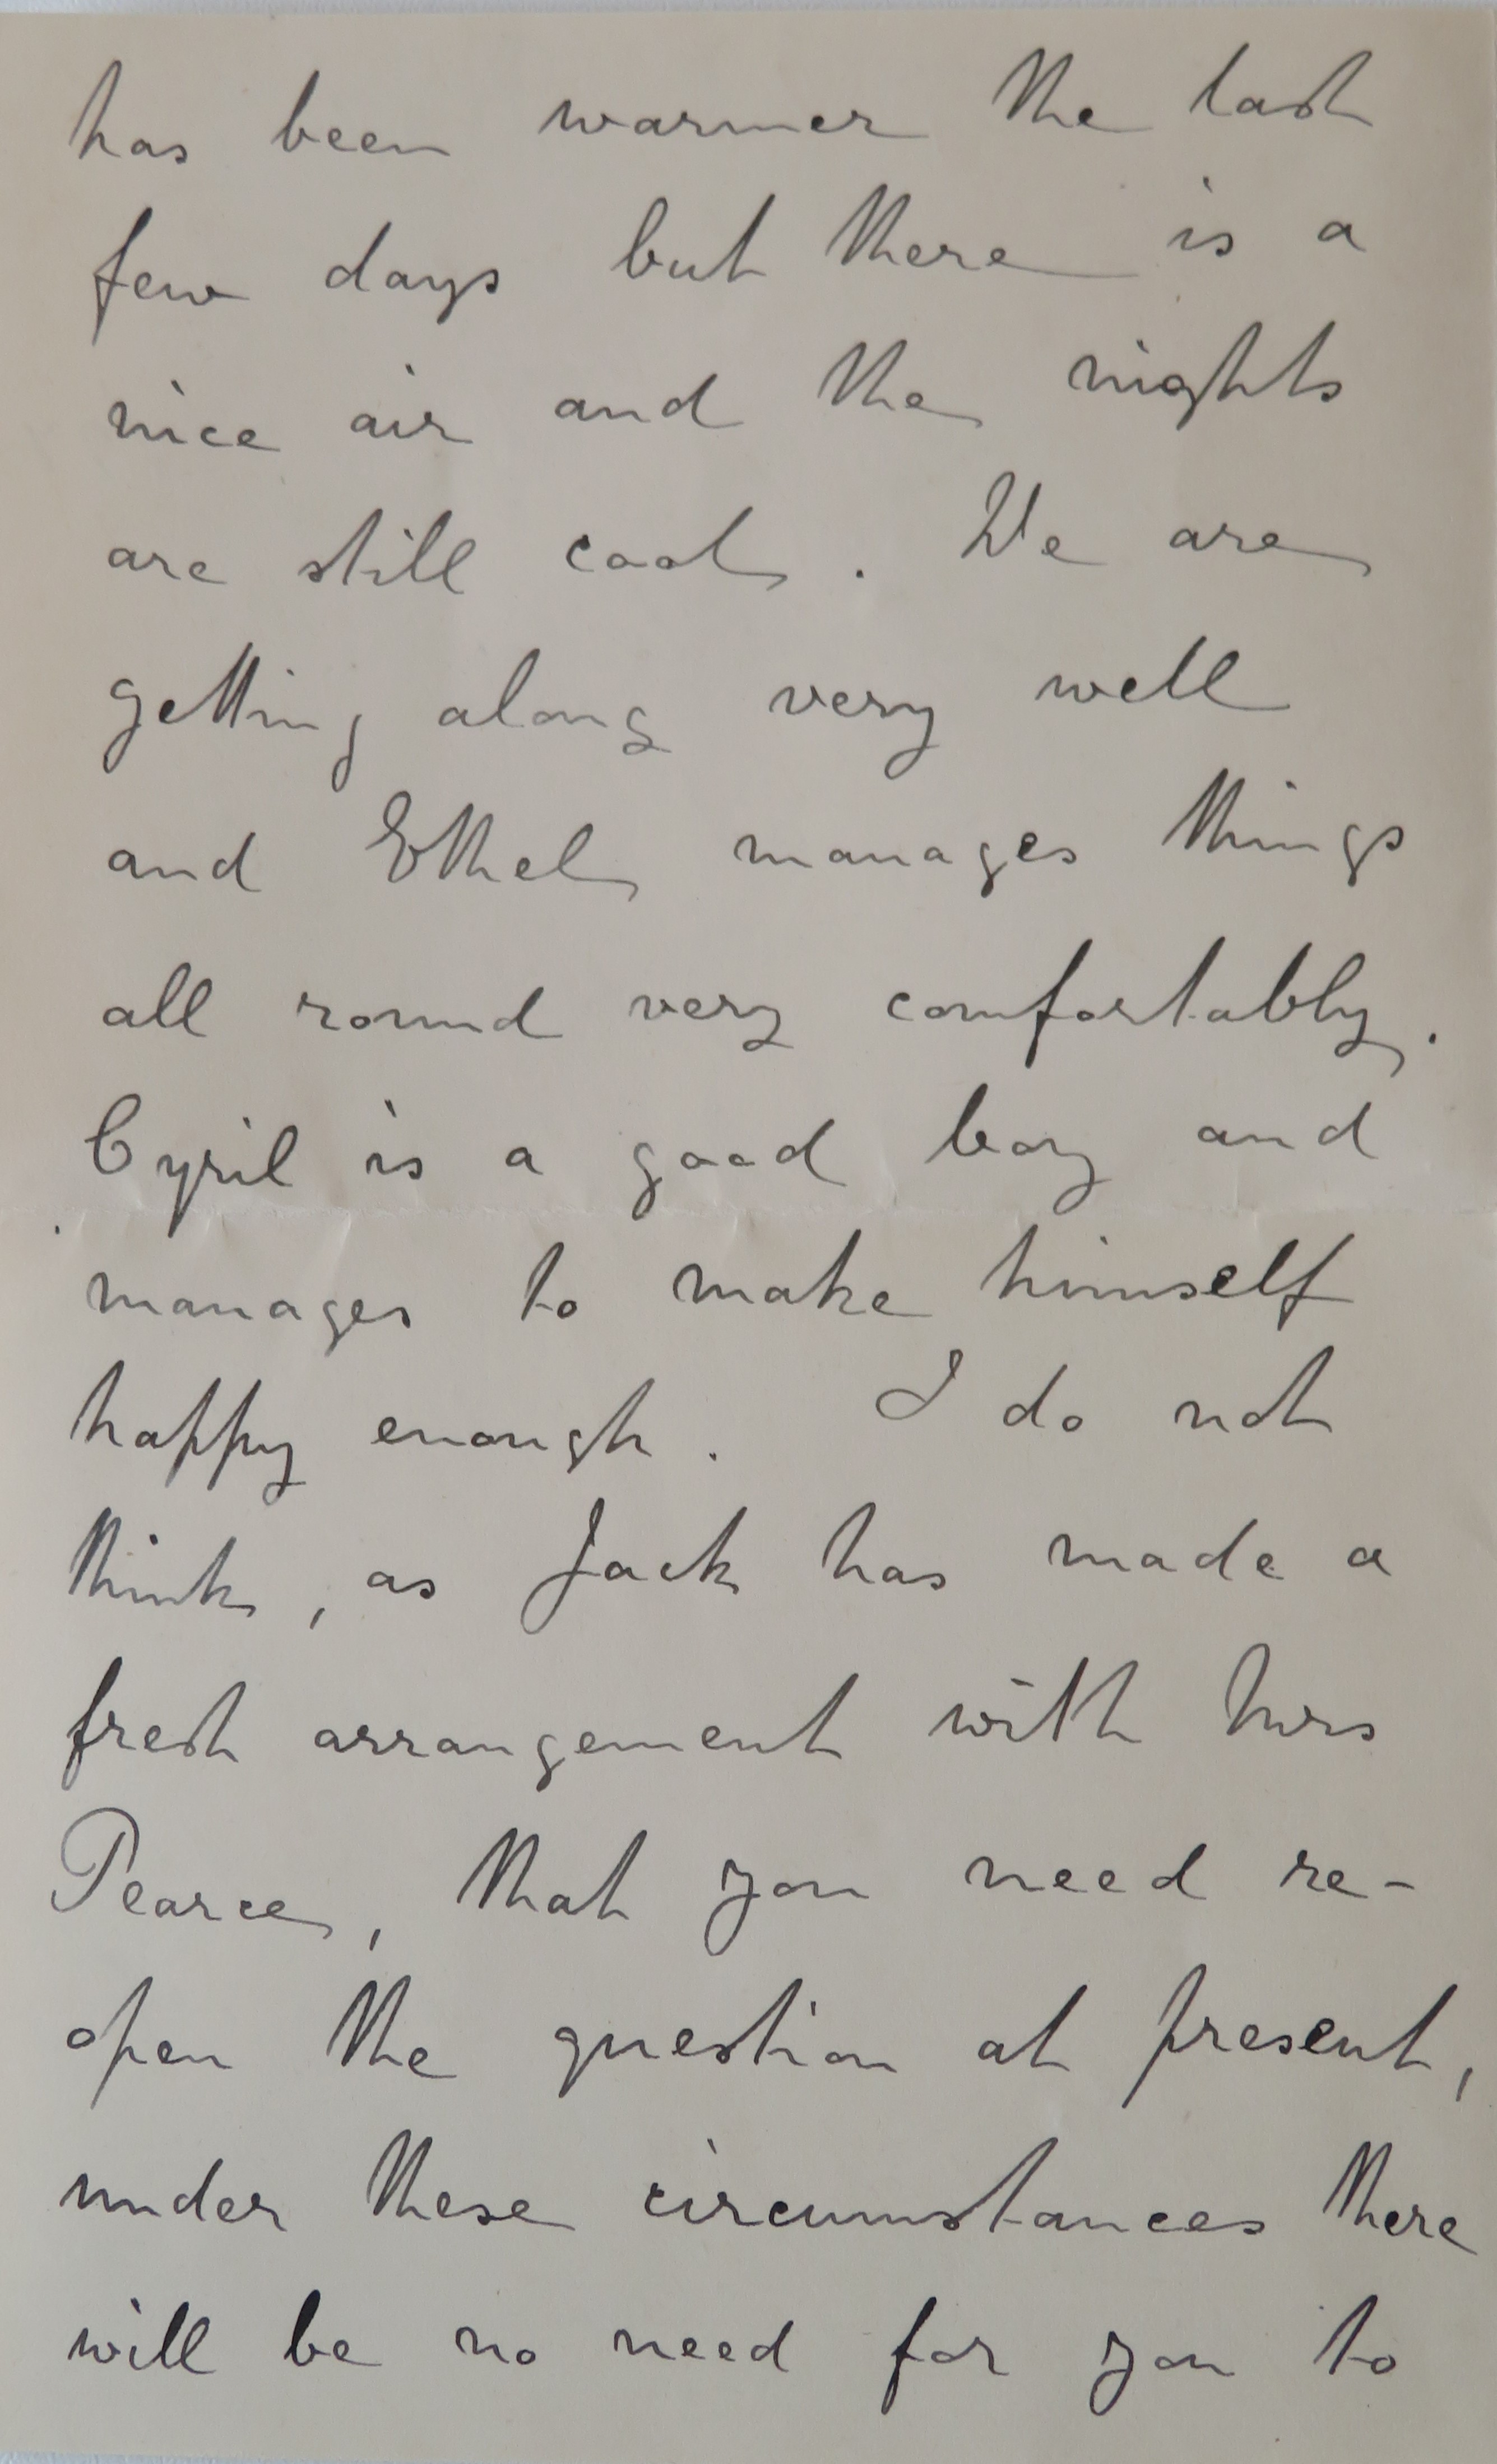 has been warmer the last
few days but there is a
nice air and the nights
are still cool. We are
getting along very well
and Ethel manages things
all round very comfortably.
Cyril is a good boy and
manages to make himself
happy enough. I do not
think, as Jack has made a
fresh arrangement with Mrs
Pearce, that you need re-
open the question at present,
under these circumstances there
will be no need for you to